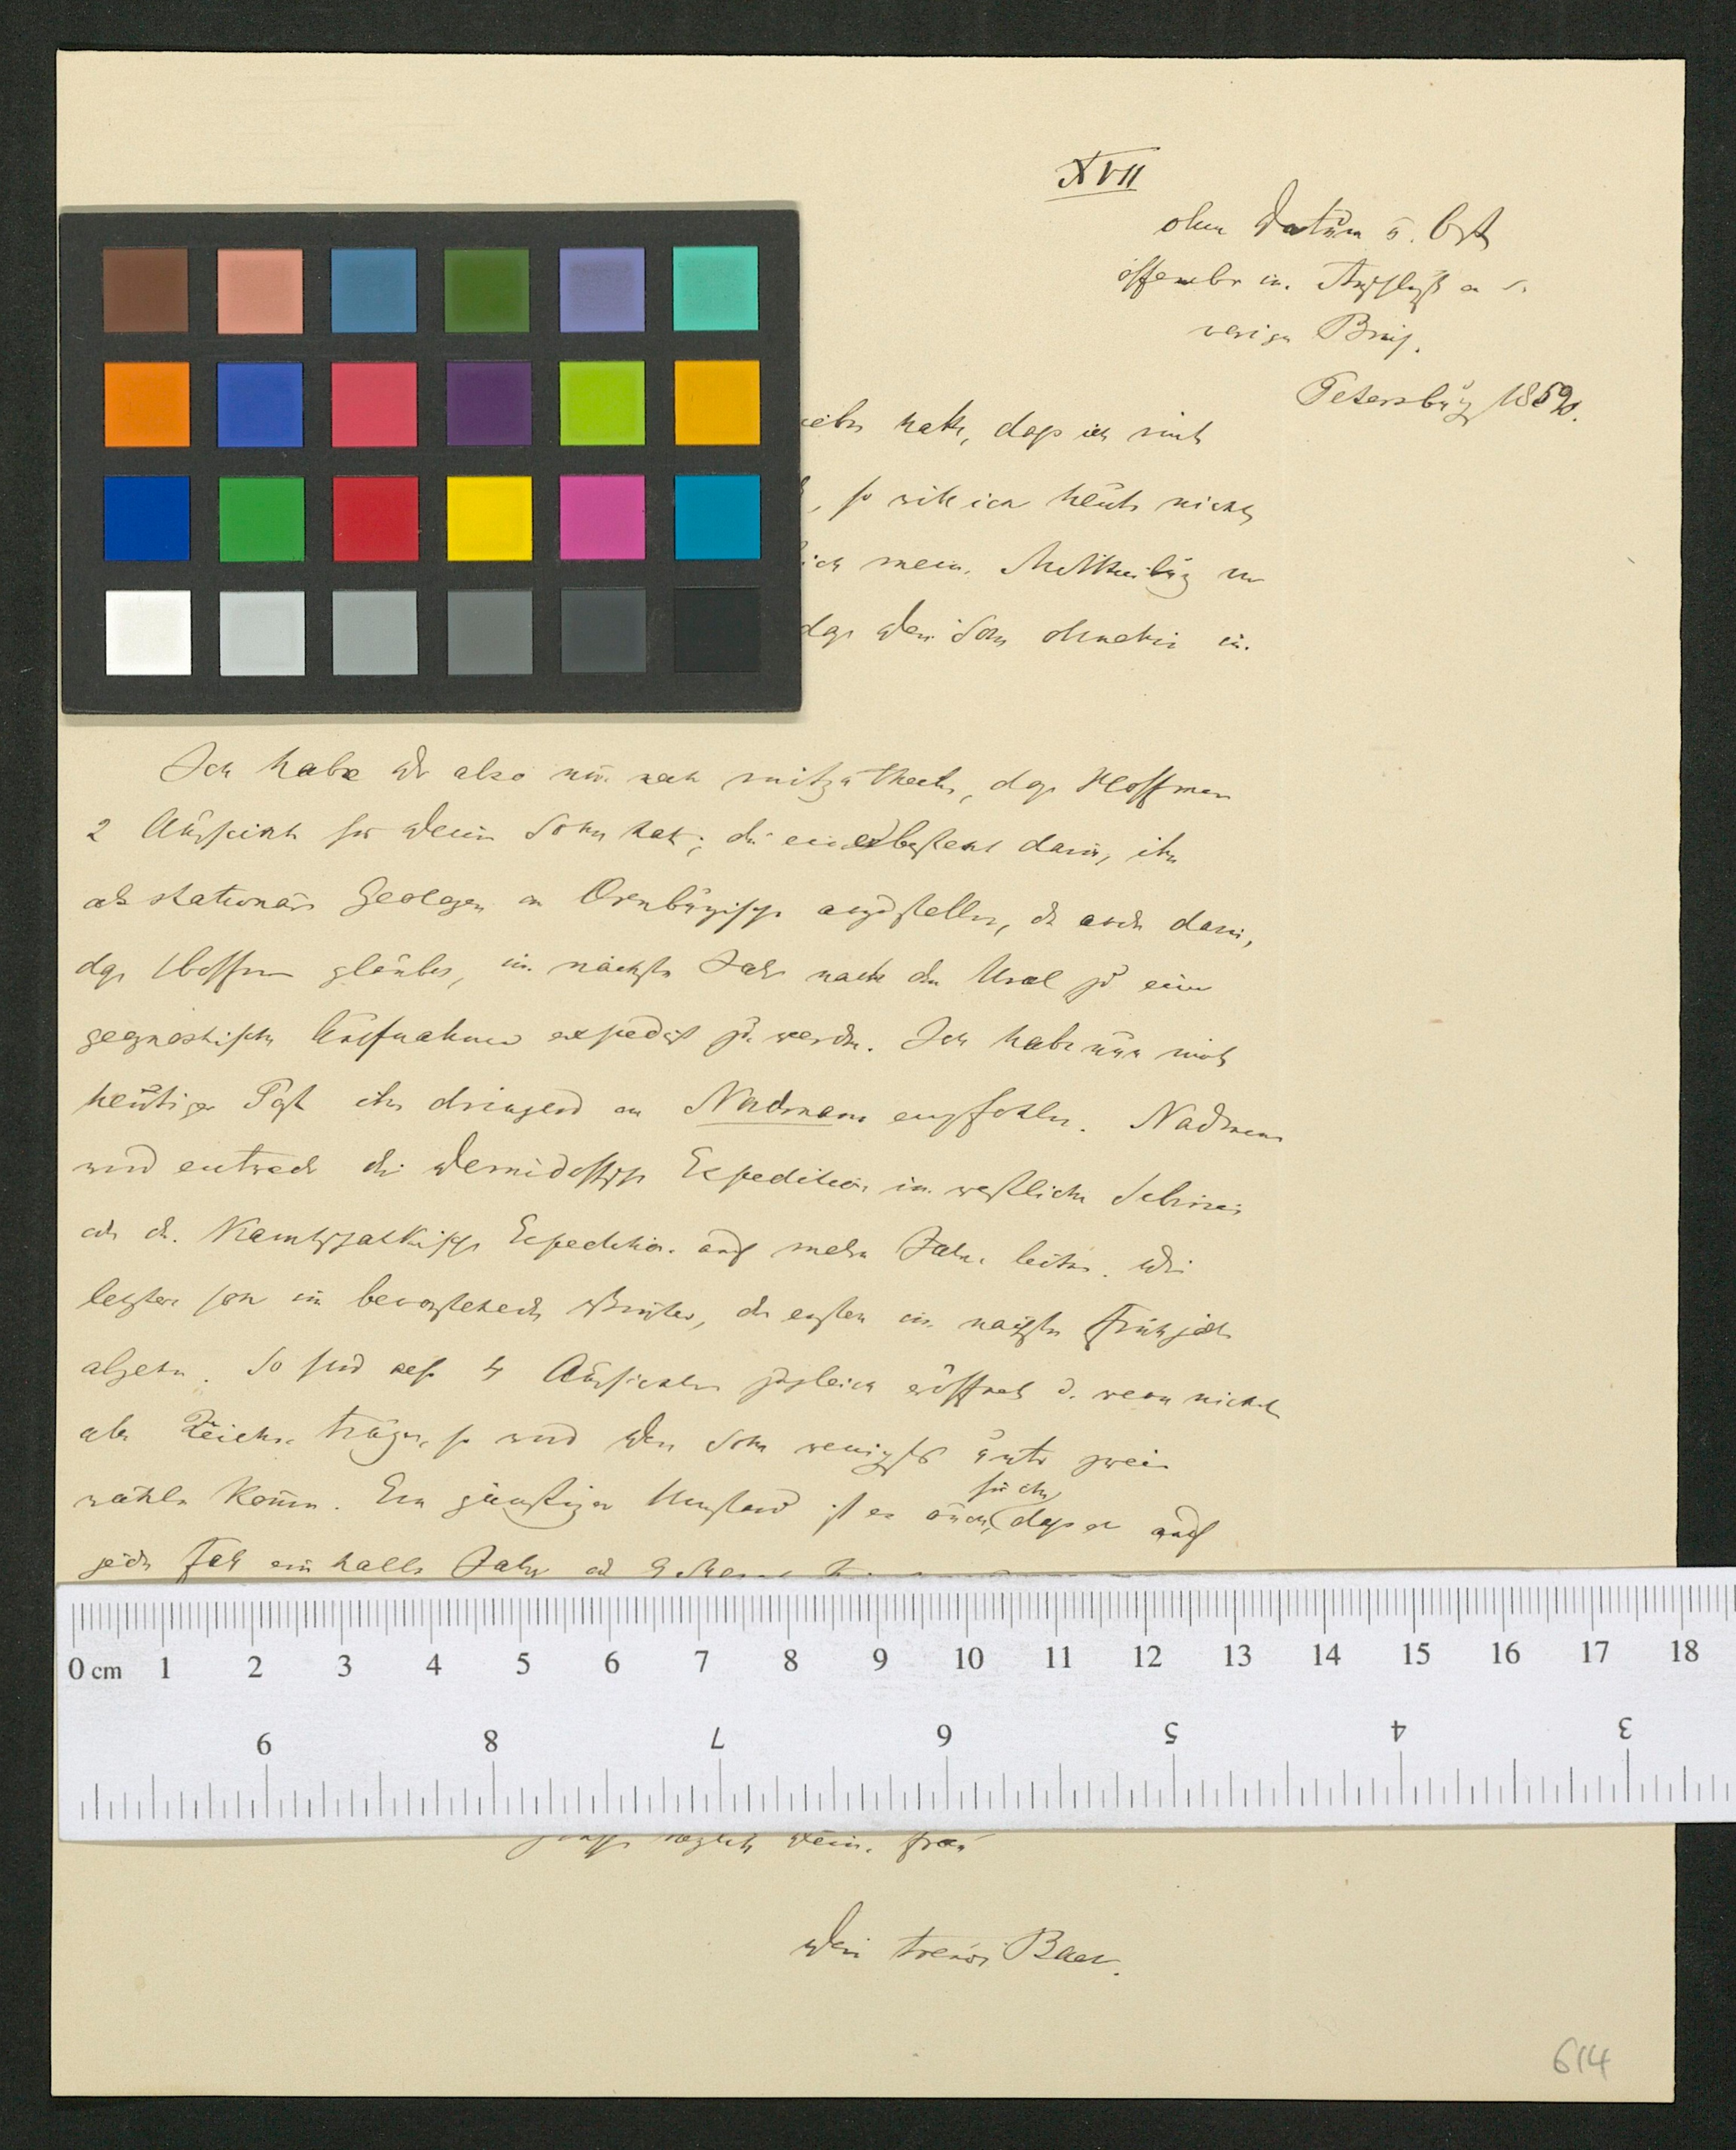 XVII
ohne Datum u. Ort
offenbar im Anschluß an d.
vorigen Brief.
Petersburg 1859.
hatte, daß ich mich
, so will ich heute nichts
mein. Mittheilung
daß Dein Sohn ohnehin in
Ich habe Dir also nur noch mitzutheilen, daß Hoffman
2 Aussicht für Deinen Sohn hat; die eine besteht darin, ihn
als stationär Geologen in Orenburgische anzustellen, die andre darin,
daß Hoffman glaubt, im nächsten Jahr nach dem Ural zu einer
geognostischen Aufnahme expedirt zu werden. Ich habe nun mit
heutiger Post ihn dringend an Nadman empfohlen. Nadman
wird entweder die Demidoffsche Expedition im westlichen Sibirien
oder die Kamtschatkische Expedition auf mehre Jahre leiten. Die
letztere soll im bevorstehenden Winter, die erstere im nächsten Frühjahr
abgehn. So sind also 4 Aussichten zugleich eröffnet u. wenn nicht
alle Zeichen trügen, so wird Dein Sohn wenigstens unter zweien
wählen können. Ein günstiger Umstand ist es auch,
für ihn
daß er auf
jeden Fall ein halbes Jahr
0 cm 1 2 3 4 5 6 7 8 9 10 11 12 13 14 15 16 17 18
9 8 7 6 5 4 3
Deine Frau
Dein treuer Baer.
614